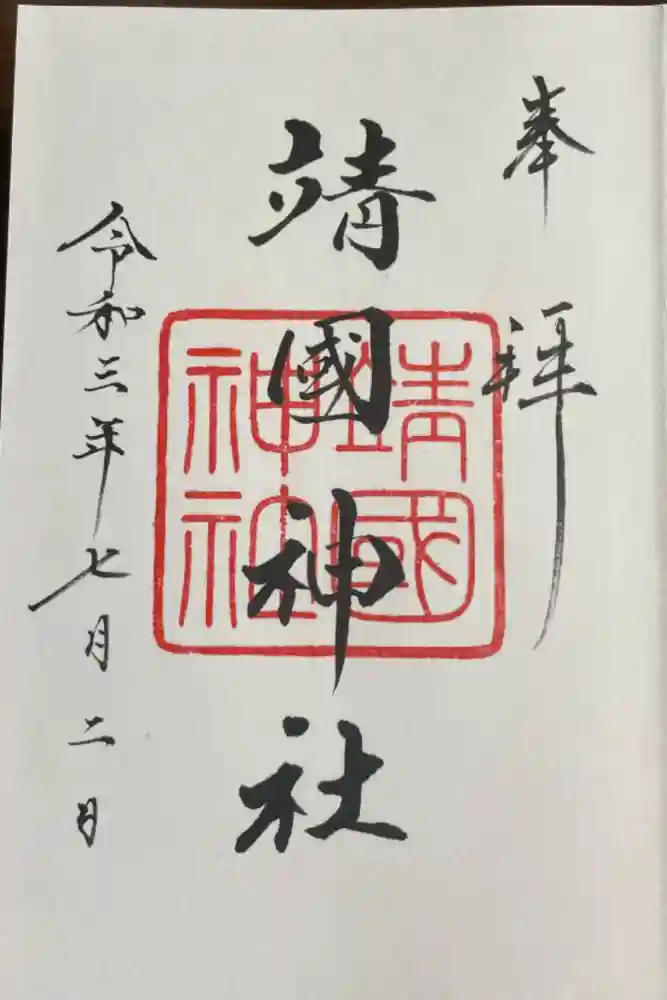 奉拝
靖國神社
靖國神社
令和三年七月二日